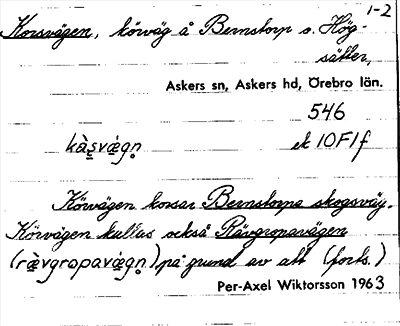 1-2
Korsvägen, körväg å Bernstorp s. Hög-
sätter,
Askers sn, Askers hd, Örebro län.
546
kàṣvæ̀gn̥ ek 10F1f
Körvägen korsar Bernstorps skogsväg.
Körvägen kallas också Rävgropavägen
(rævgropavægn̥) på grund av att (forts.)
Per-Axel Wiktorsson 1963